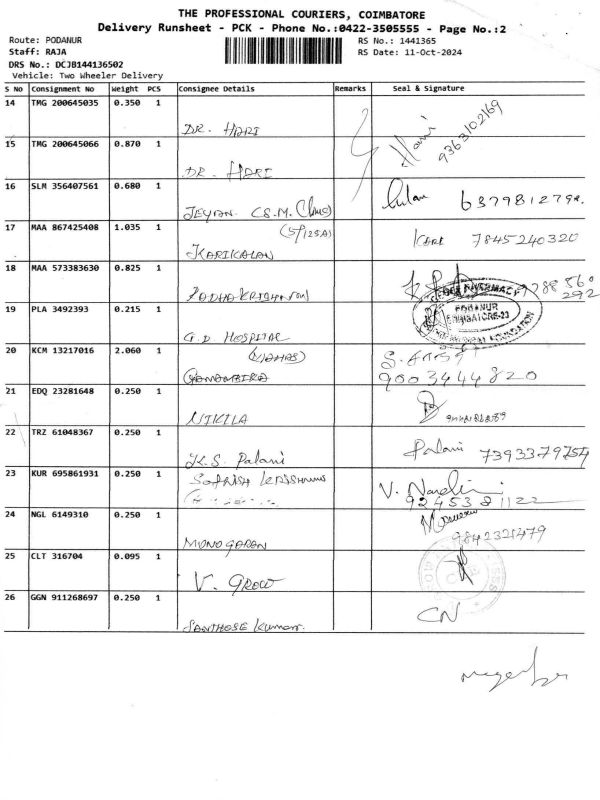 THE PROFESSIONAL COURIERS, COIMBATORE
Delivery Runsheet - PCK - Phone No.:0422-3505555 - Page No.:2
Route: PODANUR
RS No.: 1441365
Staff: RAJA
RS Date: 11-Oct-2024
DRS No.: DCJB144136502
Vehicle: Two Wheeler Delivery
S No Consignment No Weight PCS Consignee Details Remarks Seal & Signature
14 TMG 200645035 0.350 1
DR. HARI
Hari 9363102169
15 TMG 200645066 0.870 1
DR. HARI
16 SLM 356407561 0.680 1
JEYAN. CS.M.
637981279
17 MAA 867425408 1.035 1
(S/125A)
KARIKALAN
7845240320
18 MAA 573383630 0.825 1
RADHAKRISHNAN
288 560
292
PODANUR
19 PLA 3492393 0.215 1
G.D HOSPITAL
20 KCM 13217016 2.060 1
9003444820
21 EDQ 23281648 0.250 1
NIKILA
22 TRZ 61048367 0.250 1
K.S. Palani
Palani 7393379754
23 KUR 695861931 0.250 1
V. Nandini
9245381122
24 NGL 6149310 0.250 1
MONOGARAN
9842321479
25 CLT 316704 0.095 1
V. GROW
26 GGN 911268697 0.250 1
SANTHOSE Kumar.
CN